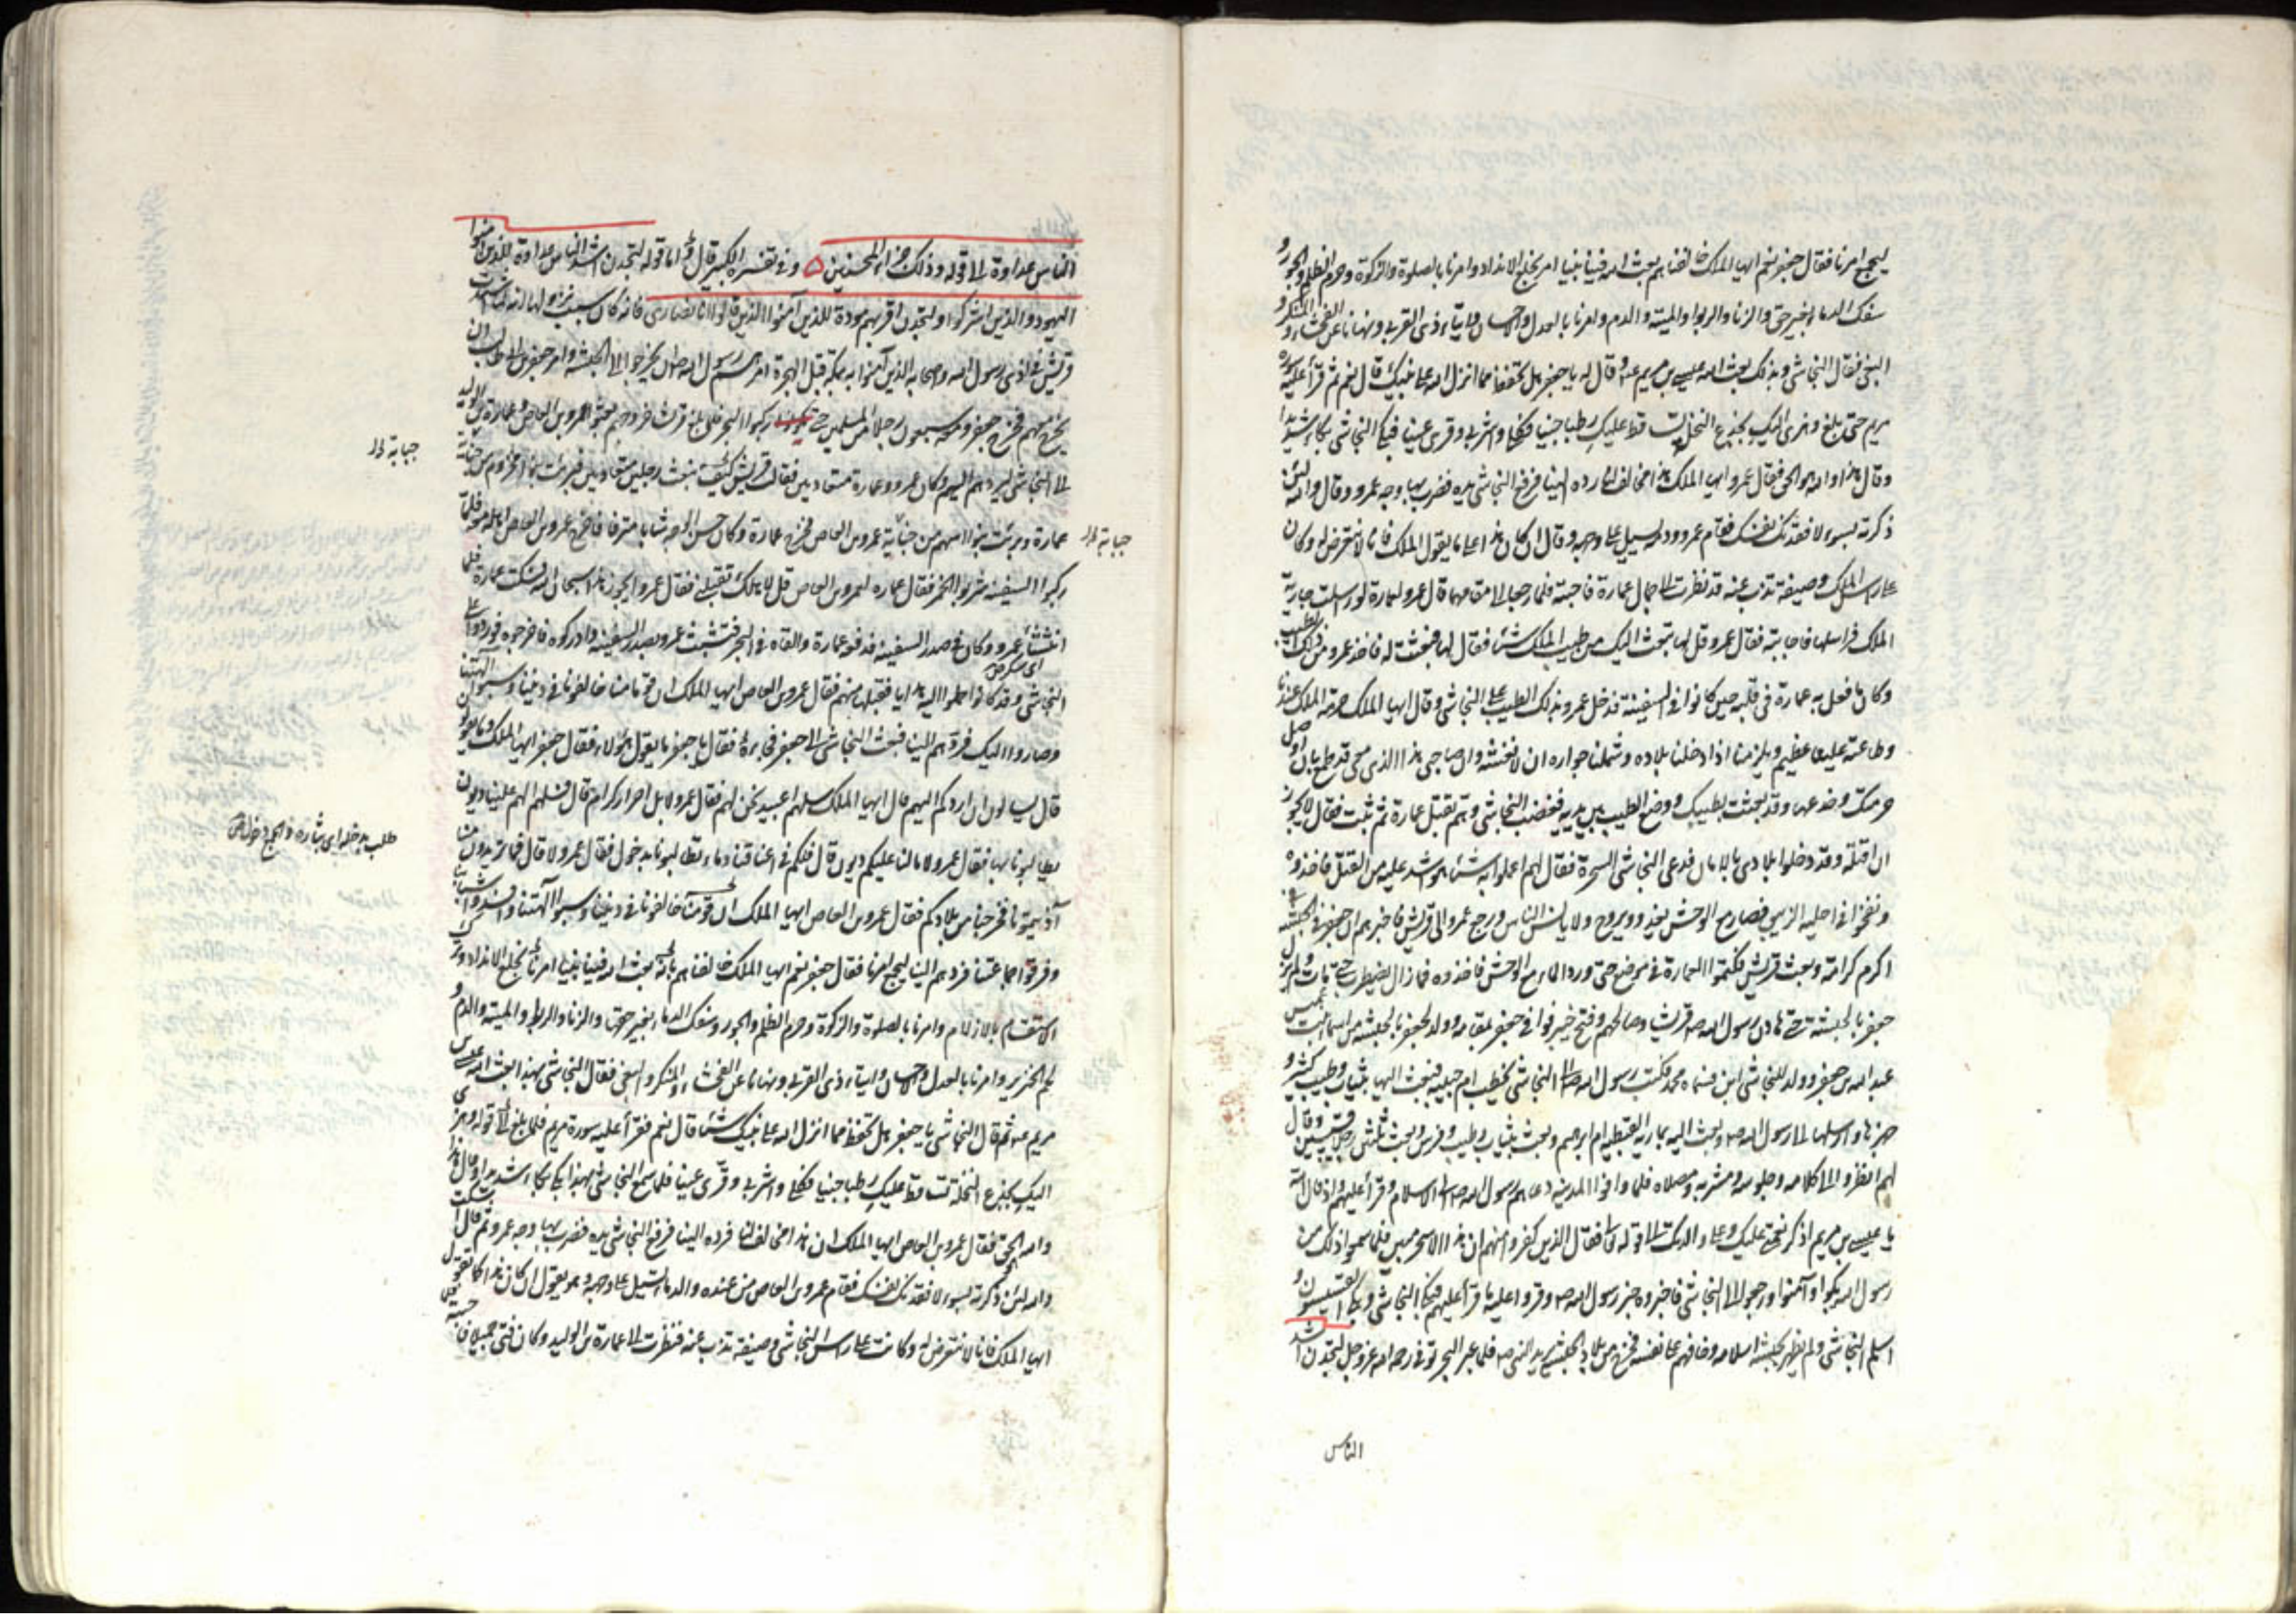 ليجمع امرنا فقال جعفر نعم ايها الملك خالفناهم بعث الله فينا نبيا امر بخلع الانداد وامرنا بالصلوة والزكوة وحرم الظلم والجور و
سفك الدماء بغير حق والزنا والربوا والميتة والدم وامرنا بالعدل والاحسان وايتاء ذى القربى ونهانا عن الفحشاء والمنكر و
البغى فقال النجاشى وبذلك بعث الله عيسى بن مريم عه وقال له يا جعفر هل تحفظ مما انزل الله على نبيك قال نعم ثم قرأ عليه سورة
مريم حتى بلغ وهزى اليك بجذع النخلة تساقط عليك رطبا جنيا فكلى واشربى وقرى عينا فبكى النجاشى بكاء شديدا
وقال هذا والله هو الحق فقال عمرو ايها الملك هذا مخالف لنا رده الينا فرفع النجاشى يده فضرب بها وجه عمرو وقال والله لئن
ذكرته بسوء لافقدنك نفسك فقام عمرو ودمه يسيل على وجهه وقال ان كان هذا على ما يقول الملك فانا لا نتعرض له وكان
على رأس الملك وصيفة تذب عنه قد نظرت الى جمال عمارة فاحبته فلما رجعا الى مقامهما قال عمرو لعمارة لو ارسلت جارية
الملك فراسلها فاجابته فقال عمرو قل لها تبعث اليك من طيب الملك شئا فقال لها فبعثت له فاخذ عمرو من ذلك الطيب
وكان ما فعل به عمارة فى قلبه حين كانوا فى السفينة فدخل عمرو بذلك الطيب على النجاشى وقال ايها الملك حرمة الملك عندنا
وطاعته علينا عظيم ويلزمنا اذا دخلنا بلاده وشملنا جواره ان لا نغشه وان صاحبى هذا الذى معى قد طمع بان اوصل
حرمتك وخدعها وقد بعثت بطيبك ووضع الطيب بين يديه فغضب النجاشى وهم بقتل عمارة ثم تثبت فقال لا يجوز
ان اقتله وقد دخلوا بلادى بالامان فدعى النجاشى السحرة فقال لهم اعملوا به شئا هو اشد عليه من القتل فاخذوه
ونفخوا فى احليله الزيبق فصار مع الوحش يغدو ويروح ولا يانس الناس ورجع عمرو الى قريش فاخبرهم ان جعفر فى الحبشه فى
اكرم كرامة وبعث قريش فكمنوا لعمارة فى موضع حتى ورد الماء مع الوحش فاخذوه فما زال يضطرب حتى مات ولم يزل
جعفر بالحبشه حتى هادن رسول الله صه قريشا وصالحهم وفتح خيبر فوافى جعفر بمن معه وولد لجعفر بالحبشه من اسماء بنت عميس
عبد الله بن جعفر وولد للنجاشى ابن فسماه محمد فكتب رسول الله صه الى النجاشى يخطب ام حبيبه فبعث اليها بثياب وطيب كثير و
جهزها وارسلها الى رسول الله صه وبعث اليه بمارية القبطيه ام ابرهيم وبعث بثياب وطيب وفرس وبعث ثلثين رجلا قسيسين وقال
لهم انظروا الى كلامه وجلوسه ومشربه ومصلاه فلما وافوا المدينه دعاهم رسول الله صه الى الاسلام وقرأ عليهم واذ قال الله
يا عيسى بن مريم اذكر نعمتى عليك وعلى والدتك الى قوله تعا فقال الذين كفروا منهم ان هذا الا سحر مبين فلما سمعوا ذلك من
رسول الله بكوا وآمنوا ورجعوا الى النجاشى فاخبروه خبر رسول الله صه وقروا عليه ما قرأ عليهم فبكى النجاشى وبكى القسيسون و
اسلم النجاشى ولم يظهر للحبشه اسلامه وخافهم على نفسه فخرج من بلاد الحبشه يريد النبى صه فلما عبر البحر توفى رحمه الله عز وجل لتجدن اشد
الناس
الناس عداوة الى قوله وذلك جزاء المحسنين ه وفى تفسيره الكبير قال واما قوله لتجدن اشد الناس عداوة للذين آمنوا
اليهود والذين اشركوا ولتجدن اقربهم مودة للذين آمنوا الذين قالوا انا نصارى فانه كان سبب نزولها انه لما اشتدت
قريش فى اذى رسول الله واصحابه الذين آمنوا به بمكة قبل الهجرة امرهم رسول الله صه ان يخرجوا الى الحبشه وامر جعفر بن ابى طالب ان
يخرج معهم فخرج جعفر ومعه سبعون رجلا من المسلمين حتى ركبوا البحر فلما بلغ قريش خروجهم بعثوا عمرو بن العاص وعمارة بن الوليد
الى النجاشى ليردهم اليهم وكان عمرو وعمارة متعاديين فقالت قريش كيف نبعث رجلين متعاديين فبرئت بنو مخزوم من جناية
عمارة وبرئت بنو سهم من جناية عمرو بن العاص فخرج عمارة وكان حسن الوجه شابا مترفا فاخرج عمرو بن العاص اهله معه فلما
ركبوا السفينه شربوا الخمر فقال عمارة لعمرو بن العاص قل لاهلك تقبلنى فقال عمرو ايجوز هذا سبحان الله فسكت عمارة فلما
انتشا عمرو وكان فى صدر السفينه فدفعه عمارة والقاه فى البحر فتشبث عمرو بصدر السفينه وادركوه فاخرجوه فوردوا على
اى سكر
النجاشى وقد كانوا حملوا اليه هدايا فقبلها منهم فقال عمرو بن العاص ايها الملك ان قوما منا خالفونا فى ديننا وسبوا آلهتنا
وصاروا اليك فردهم الينا فبعث النجاشى الى جعفر فجاءه فقال يا جعفر ما يقول هؤلاء فقال جعفر ايها الملك وما يقولون
قال يسالون ان اردكم اليهم قال ايها الملك سلهم اعبيد نحن لهم فقال عمرو لا بل احرار كرام قال فسلهم الهم علينا ديون
يطالبونا بها فقال عمرو لا مالنا عليكم ديون قال فلكم فى اعناقنا دماء تطالبونا بدخول فقال عمرو لا قال فما تريدون منا
آذيتمونا فخرجنا من بلادكم فقال عمرو بن العاص ايها الملك ان قومنا خالفونا فى ديننا وسبوا آلهتنا وافسدوا شباننا
وفرقوا جماعتنا فردهم الينا ليجمع امرنا فقال جعفر نعم ايها الملك خالفناهم بانه بعث الله فينا نبيا امرنا بخلع الانداد وترك
الاستقسام بالازلام وامرنا بالصلوة والزكوة وحرم الظلم والجور وسفك الدماء بغير حق والزنا والربو والميتة والدم و
لحم الخنزير وامرنا بالعدل والاحسان وايتاء ذى القربى ونهانا عن الفحشاء والمنكر والبغى فقال النجاشى بهذا بعث الله عيسى بن
مريم عه ثم قال النجاشى يا جعفر هل تحفظ مما انزل الله على نبيك شئا قال نعم فقرأ عليه سورة مريم فلما بلغ الى قوله وهزى
اليك بجذع النخلة تساقط عليك رطبا جنيا فكلى واشربى وقرى عينا فلما سمع النجاشى بهذا بكى بكاء شديدا وقال هذا
والله الحق فقال عمرو بن العاص ايها الملك ان هذا مخالف لنا فرده الينا فرفع النجاشى يده فضرب بها وجه عمرو ثم قال اسكت
والله لئن ذكرته بسوء لافقدنك نفسك فقام عمرو بن العاص من عنده والدماء تسيل على وجهه وهو يقول ان كان هذا كما تقول
ايها الملك فانا لا نتعرض له وكانت على رأس النجاشى وصيفة تذب عنه فنظرت الى عمارة بن الوليد وكان فتى جميلا فاحبته فلما